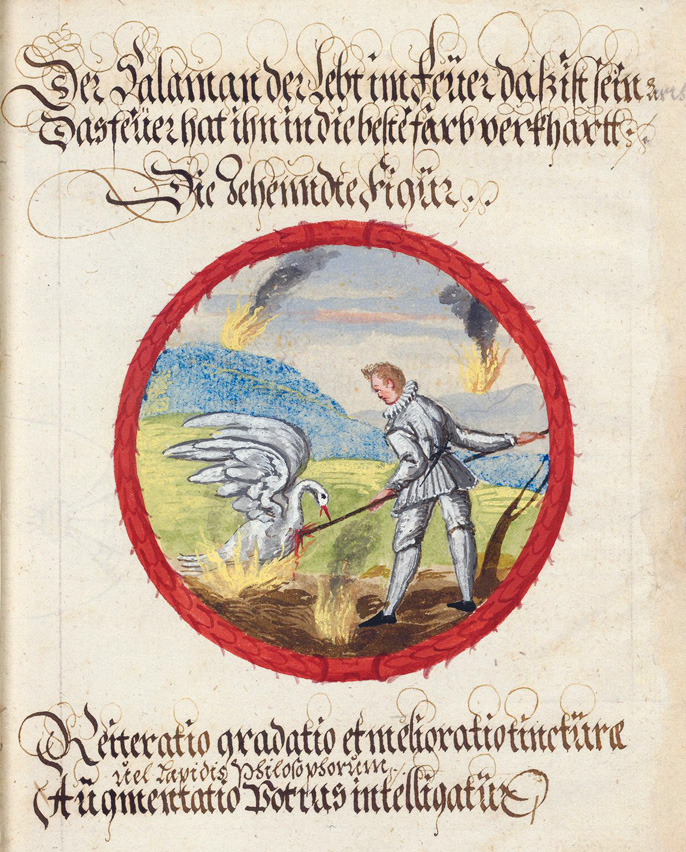 Der Salamander lebt im feüer daß ist sein art
Das feüer hat ihn in die beste farb verkhartt.
Die Zehenndte Figür..
Reiteratio gradatio et melioratio tinctüræ
vel Lapidis Philosophorum
Aügmentatio Potius intelligatür